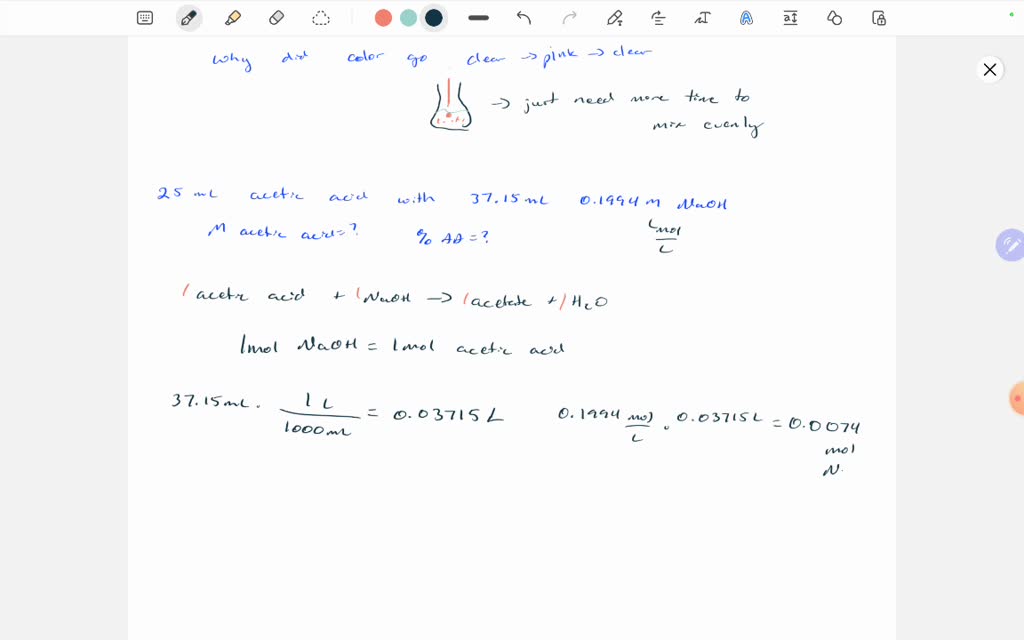 why did color go clear → pink → clear
→ just need more time to
mix evenly
25 mL acetic acid with 37.15 mL 0.1994 M NaOH
M acetic acid = ? % AA = ?
mol
L
1 acetic acid + 1 NaOH → 1 acetate + 1 H2O
1 mol NaOH = 1 mol acetic acid
37.15 mL · 1 L / 1000 mL = 0.03715 L
0.1994 mol / L · 0.03715 L = 0.0074
mol
N